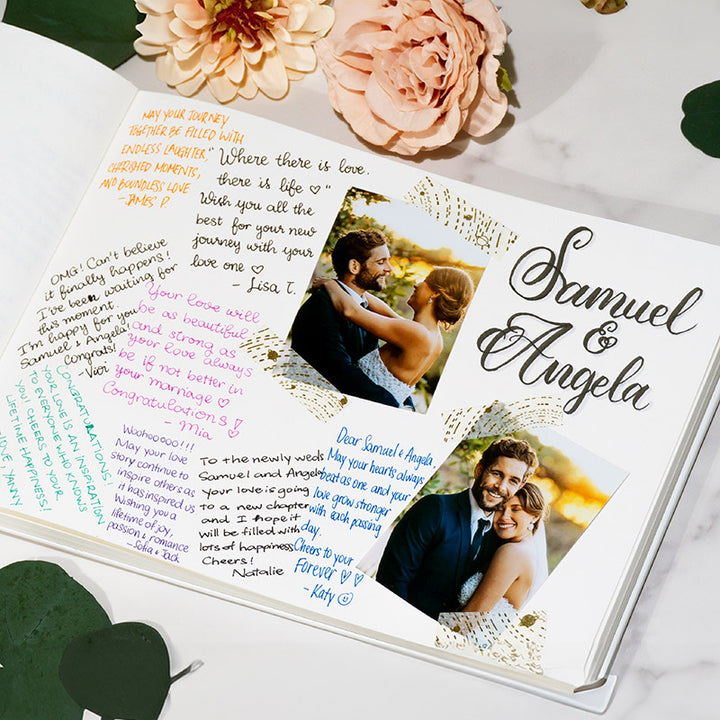 MAY YOUR JOURNEY
TOGETHER BE FILLED WITH
ENDLESS LAUGHTER,
CHERISHED MOMENTS,
AND BOUNDLESS LOVE
- JAMES P.
"Where there is love.
there is life ♡"
Wish you all the
best for your new
journey with your
love one ♡
- Lisa T.
Samuel
&
Angela
OMG! Can't believe
it finally happens!
I've been waiting for
this moment.
I'm happy for you
Samuel & Angela!
Congrats!
- Viori
Your love will
be as beautiful
and strong as
your love always
be if not better in
your marriage ♡
Congratulations!
- Mia ♡
CONGRATULATIONS,
YOUR LOVE IS AN INSPIRATION
TO EVERYONE WHO KNOWS
YOU! CHEERS TO YOUR
LIFETIME HAPPINESS!
LOVE, YANNY
Woohooooo!!!
May your love
story continue to
inspire others as
it has inspired us
Wishing you a
lifetime of joy,
passion & romance
- Sofia & Jack
To the newly weds
Samuel and Angela
your love is going
to a new chapter
and I hope it
will be filled with
lots of happiness
Cheers!
Natalie
Dear Samuel & Angela
May your hearts always
beat as one and your
love grow stronger
with each passing
day.
Cheers to your
Forever ♡ ♡
- Katy ☺